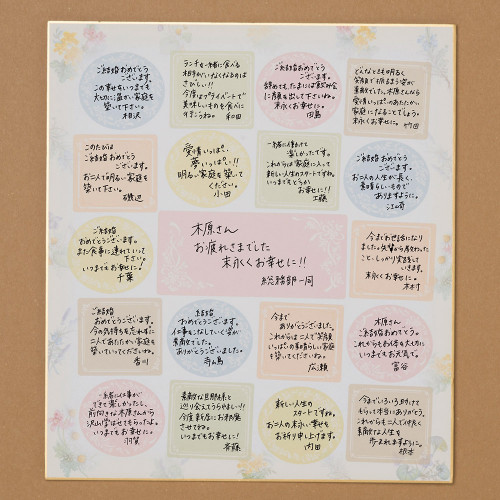 ご結婚おめでとう
ございます。
この幸せをいつまでも
大切に温かい家庭を
築いて下さい。
相沢
ランチを一緒に食べる
相手がいなくなるのは
さびしい!!
今度はプライベートで
美味しいものを食べに
行きこうね。
和田
ご結婚おめでとう
ございます。
辞めても、たまには飲み会
に顔を出して下さいね。
末永くお幸せに!!
田島
どんなときも明るく
笑顔で明るまう姿が
素敵でした。木原さんなら
愛情いっぱいのあたたかい
家庭になることでしょう。
末永くお幸せに。
竹田
このたびは
ご結婚おめでとう
ございます。
お二人で明るい家庭を
築いて下さい。
磯辺
愛情いっぱい、
夢いっぱい!!
明るい家庭を築いて
ください。
小田
一緒に働けて
楽しかったです。
これからは家庭に入って
新しい人生のスタートですね。
いつまでもどうか、
お幸せに!!
工藤
ご結婚おめでとう
ございます。
お二人の人生が長く、
素晴らしいもので
ありますように。
江崎
ご結婚
おめでとうございます。
また食事に連れていって
下さい。
いつまでもお幸せに!
千葉
木原さん
お疲れさまでした
末永くお幸せに!!
総務部一同
今までお世話になり
ました。先輩から教わった
こと、しっかり実践して
いきます。
末永くお幸せに。
木村
ご結婚
おめでとうございます。
今の気持ちを忘れずに
二人であたたかい家庭
を築いていってくださいね。
香川
結婚
おめでとうございます。
仕事をこなしていく姿が
素敵でした。
ありがとうございました。
寺島
今まで
ありがとうございました。
これからは二人で笑顔
いっぱいの素晴らしい家庭
を築いていって下さい。
広瀬
木原さん
ご結婚おめでとう。
これからもお体を大切に
いつまでもお元気で。
富谷
一緒にお仕事が
できて楽しかったし、
前向きな木原さんから
沢山学ばせてもらったよ。
いつまでもお幸せに。
羽賀
素敵な旦那様と
巡り会えてうらやましい!!
今度新居にお邪魔
させてね。
いつまでもお幸せに!
斉藤
新しい人生の
スタートですね。
お二人の末永い幸せを
お祈り申し上げます。
内田
今までいろいろ助けて
もらって本当にありがとう。
これからも二人で仲良く
素敵な人生を
歩まれますように。
根本